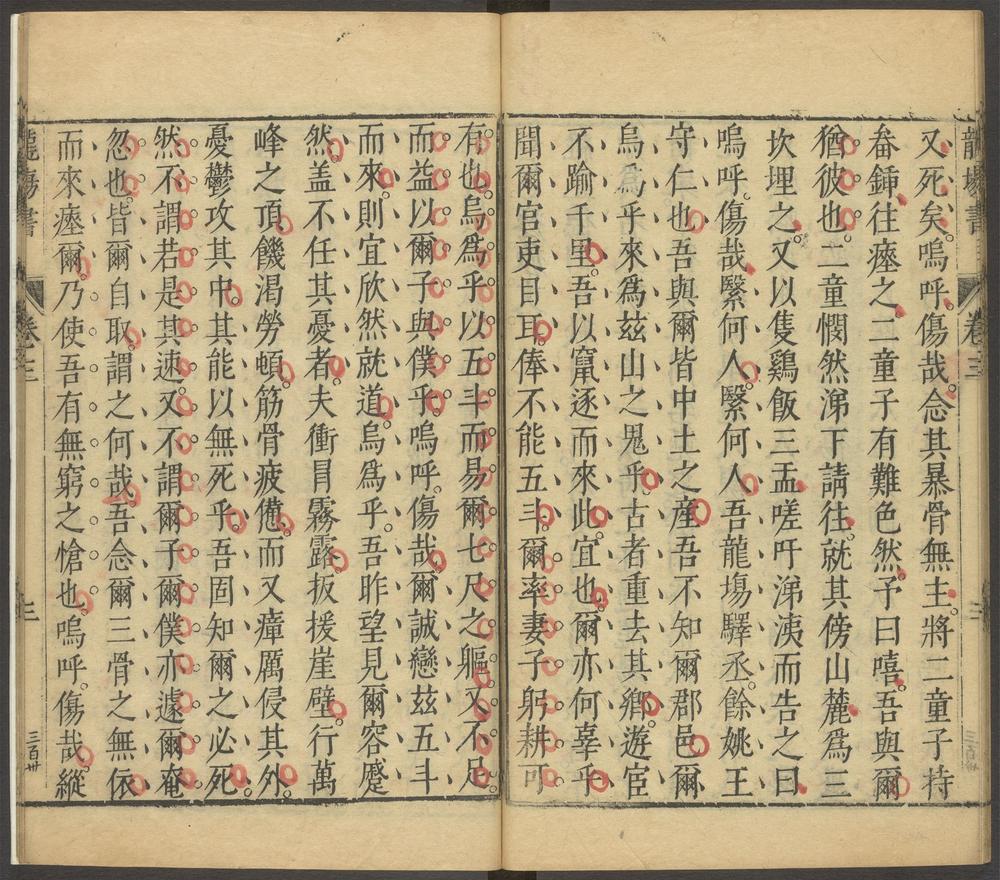 龍場書
卷三
二
又死矣嗚呼傷哉念其暴骨無主將二童子持
畚鍤往瘞之二童子有難色然予曰嘻吾與爾
猶彼也二童憫然涕下請往就其傍山麓為三
坎埋之又以隻鷄飯三盂嗟吁涕洟而告之曰
嗚呼傷哉繄何人繄何人吾龍塲驛丞餘姚王
守仁也吾與爾皆中土之產吾不知爾郡邑爾
烏為乎來為兹山之鬼乎古者重去其鄉遊宦
不踰千里吾以竄逐而來此宜也爾亦何辜乎
聞爾官吏目耳俸不能五斗爾率妻子躬耕可
有也烏為乎以五斗而易爾七尺之軀又不足
而益以爾子與僕乎嗚呼傷哉爾誠戀兹五斗
而來則宜欣然就道烏為乎吾昨望見爾容蹙
然盖不任其憂者夫衝冒霧露扳援崖壁行萬
峰之頂饑渴勞頓筋骨疲憊而又瘴厲侵其外
憂鬱攻其中其能以無死乎吾固知爾之必死
然不謂若是其速又不謂爾子爾僕亦遽爾奄
忽也皆爾自取謂之何哉吾念爾三骨之無依
而來瘞爾乃使吾有無窮之愴也嗚呼傷哉縱
書
卷三
三
三百卅